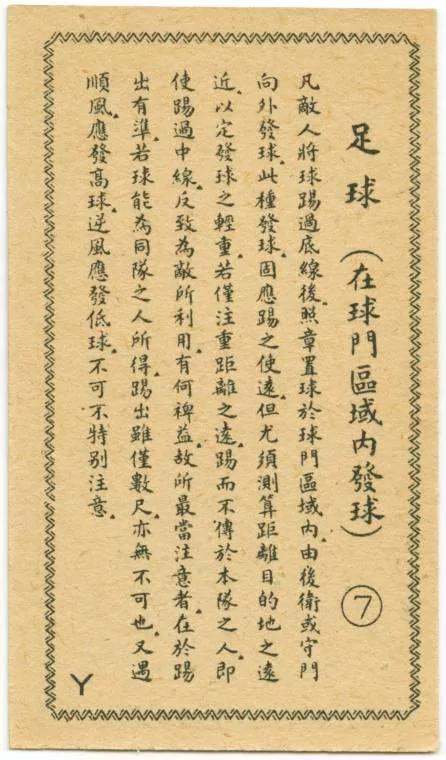 足球（在球門區域內發球）
⑦
凡敵人將球踢過底線後。照章置球於球門區域內。由後衛或守門
向外發球。此種發球。固應踢之使遠。但尤須測算距離目的地之遠
近。以定發球之輕重。若僅注重距離之遠。踢而不傳於本隊之人。即
使踢過中線。反致為敵所利用。有何裨益。故所最當注意者。在於踢
出有準。若球能為同隊之人所得。踢出雖僅數尺。亦無不可也。又遇
順風。應發高球。逆風應發低球。不可不特別注意。
Y